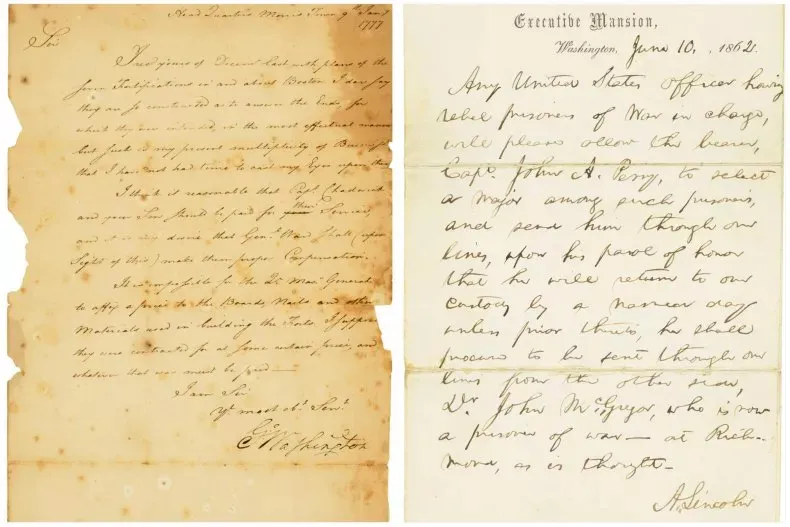 Head Quarters Morris Town 9th Jany
1777
Sir
I recd yours of Decemr last with plans of the
Fortifications in and about Boston I dare say
they are so constructed as to answer the Ends for
which they are intended, in the most effectual manner
but such is my present multiplicity of Business
that I have not had time to cast my Eyes upon them
I think it reasonable that Capt. Chadwick
and your Son should be paid for their Services,
and it is my desire that Genl. Ward shall (upon
Sight of this) make them proper Compensation.
It is impossible for the Qr. Mar. General
to affix a price to the Boards Nails and other
Materials used in building the Forts. I suppose
they were contracted for at some certain price, and
whatever that was must be paid —
I am Sir
Yr. most ob. Servt.
Go: Washington
Executive Mansion,
Washington, June 10, , 1862.
Any United States officer having
rebel prisoners of War in charge,
will please allow the bearer,
Capt. John A. Perry, to select
a Major among such prisoners,
and send him through our
lines, upon his parol of honor
that he will return to our
custody by a named day
unless prior thereto, he shall
procure to be sent through our
lines from the other side,
Dr. John McGregor, who is now
a prisoner of war — at Rich-
mond, as is thought —
A. Lincoln